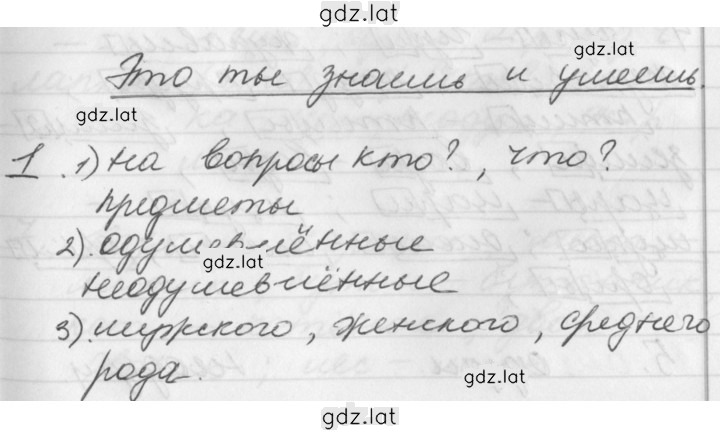 gdz.lat
Это ты знаешь и умеешь.
gdz.lat
gdz.lat
1. 1) на вопросы кто?, что?
предметы
2). одушевлённые
gdz.lat
неодушевлённые
3). мужского, женского, среднего
рода.
gdz.lat
gdz.lat